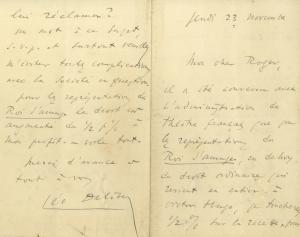 Jeudi 23 novembre
Mon cher Roger,
il a été convenu avec
l'administration du
théâtre français que pour
les représentations du
Roi s'amuse, en dehors
du droit ordinaire qui
revient en entier à
Victor Hugo, je toucherai
1/2 % sur la recette
lui réclamer?
un mot à ce sujet,
s.v.p. et surtout veuillez
m'éviter toute complication
avec la Société en question
pour les représentations du
Roi s'amuse le droit est
augmenté du 1/2 p %
mon profit - voilà tout.
merci d'avance et
tout à vous
Léo Delibes